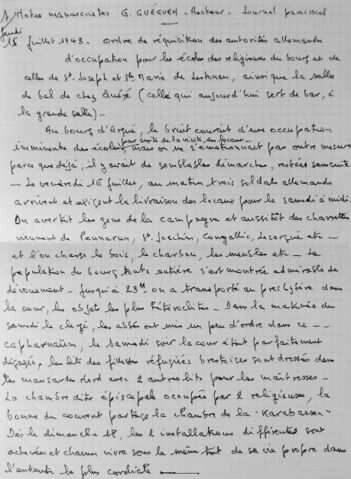 Notes manuscrites G. GUÉGUEN - Recteur - Journal paroissial
Jeudi
15 juillet 1943. Ordre de réquisition des autorités allemandes
d'occupation pour les écoles des religieuses du bourg et de
celles de St. Joseph et Ste Marie de Lestonan, ainsi que la salle
de bal de chez Quéré (celle qui aujourd'hui sert de bar, à
la grande salle) -
Au bourg d'Ergué, le bruit courait d'une occupation
par suite de la visite des locaux
imminente des écoles mais on ne s'émotionnait pas outre mesure
parce que déjà, il y avait de semblables démarches, restées sans suite
- Le vendredi 16 juillet, au matin trois soldats allemands
arrivent et exigent la livraison des locaux pour le samedi à midi.
On avertit les gens de la campagne et aussitôt des charrettes
viennent de Pennarun, St. Joachim, Congallic, Lezergué etc -
et l'on charge le bois, le charbon, les meubles etc - La
population du bourg toute entière s'est montrée admirable de
dévouement - Jusqu'à 23h on a transporté au presbytère dans
la cour, les objets les plus hétéroclites - Dans la matinée du
samedi le clergé, les abbés ont mis un peu d'ordre dans ce --
capharnaüm, le samedi soir la cour était parfaitement
dégagée, les lits des fillettes réfugiées brestoises sont dressés dans
les mansardes nord avec 2 autres lits pour les maîtresses -
La chambre dite épiscopale occupée par 2 religieuses, la
bonne du couvent partage la chambre de la "Karabassen"
Dès le dimanche 18, les 2 installations différentes sont
achevées et chacun vivra sous le même toit de sa vie propre dans
l'entente la plus cordiale -